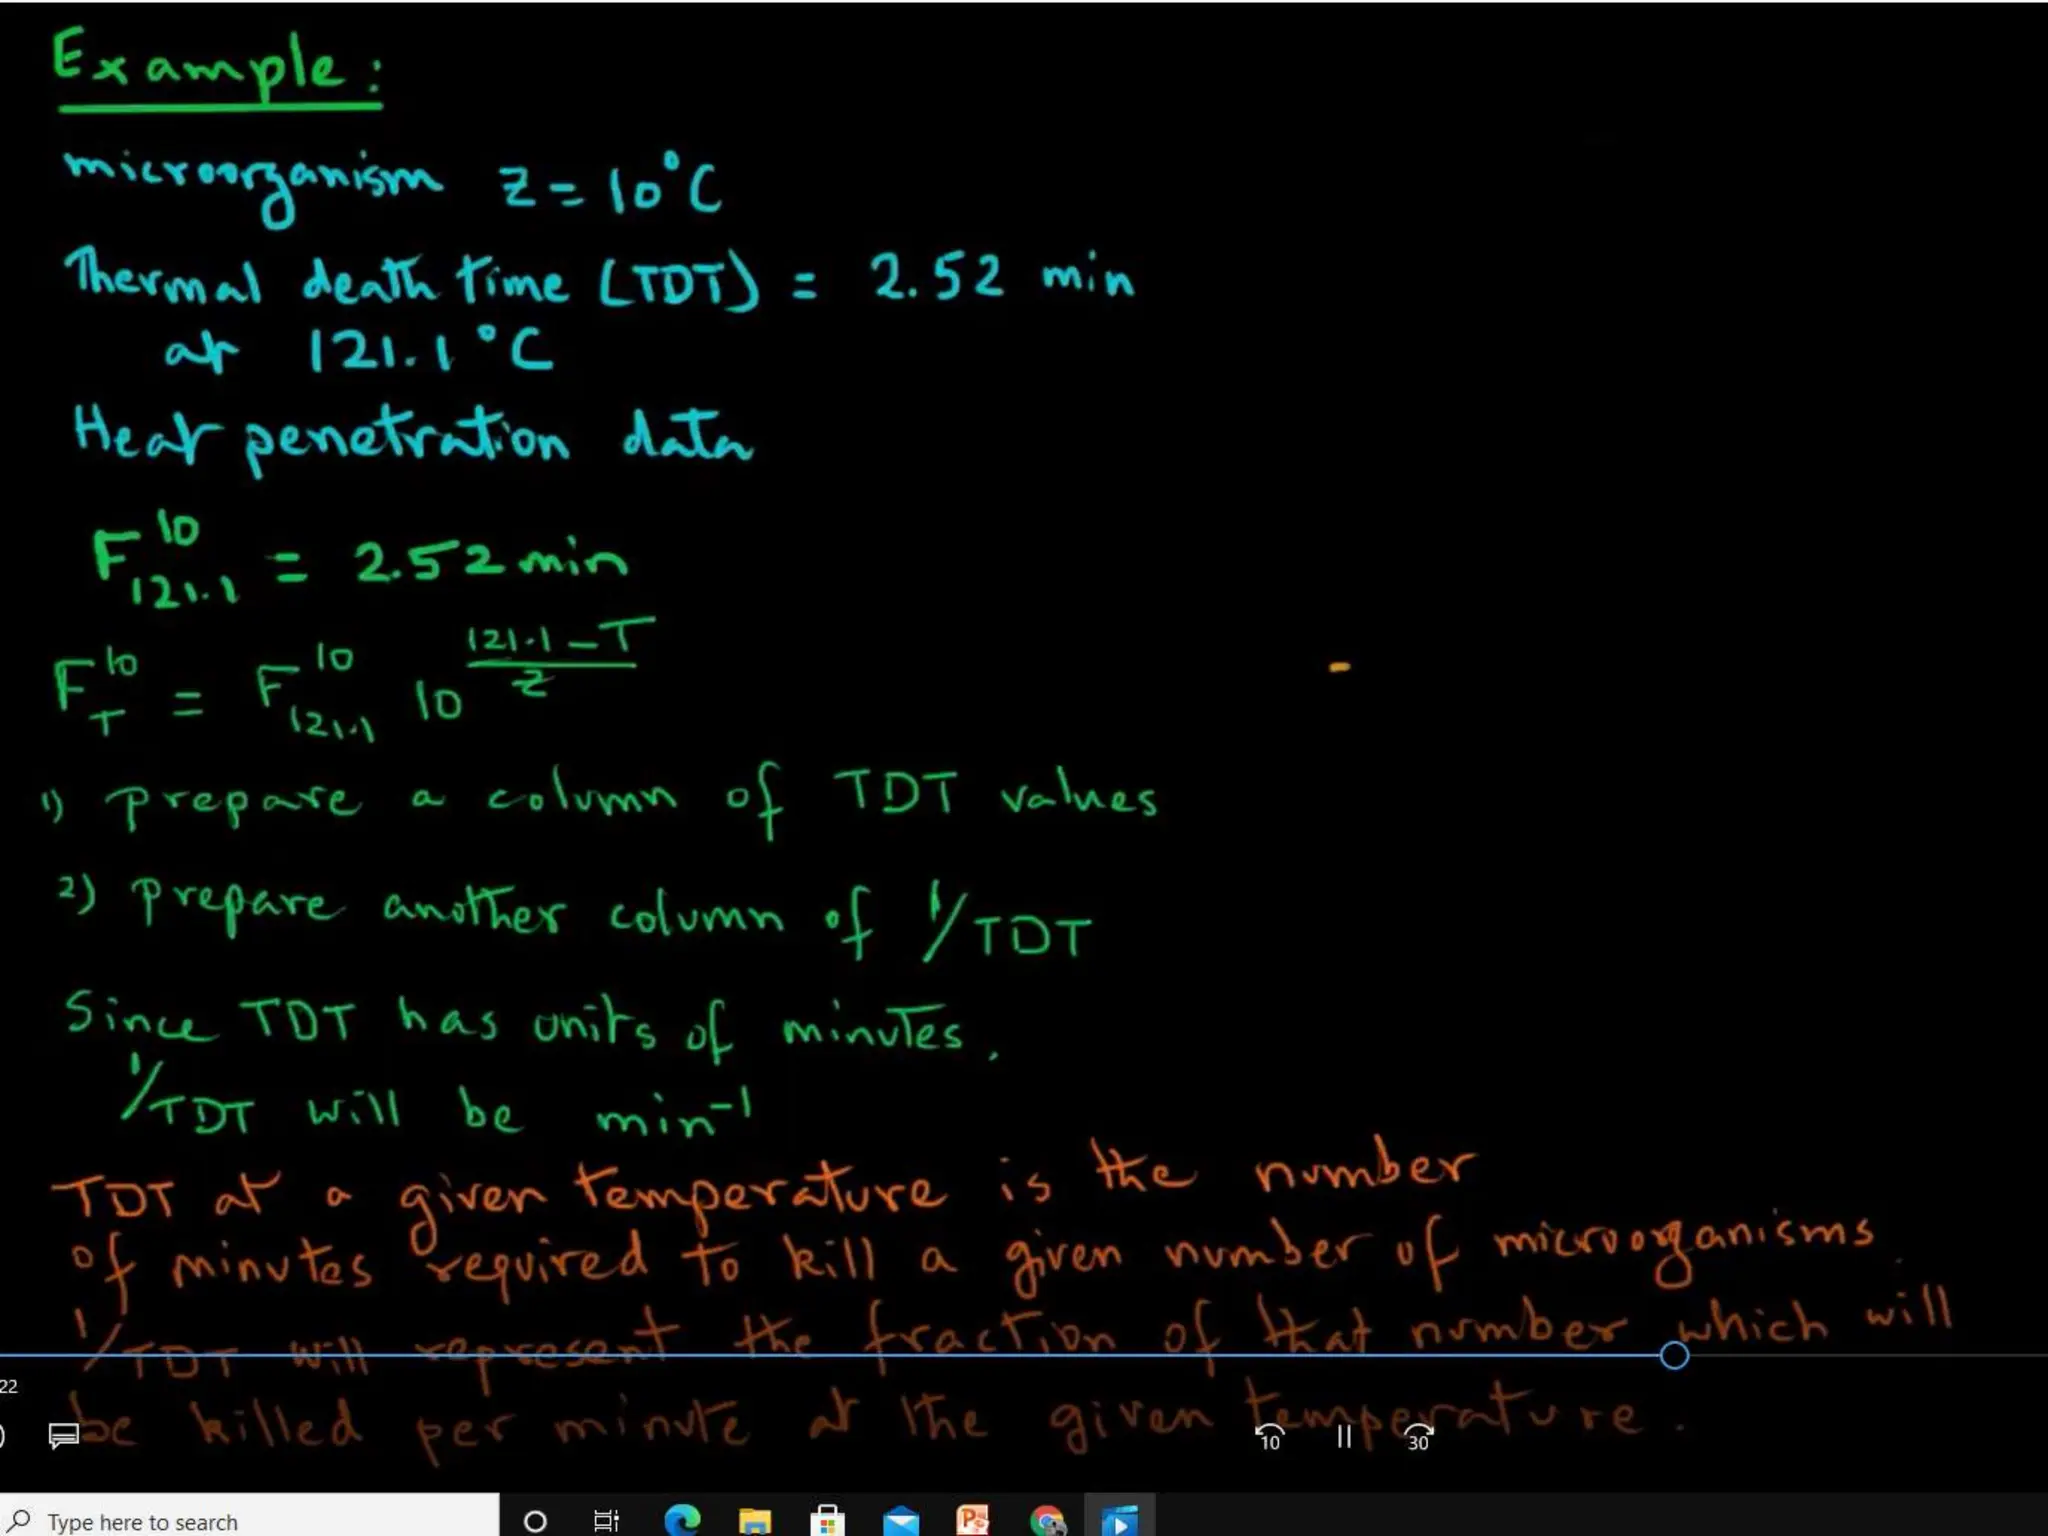 Example:
microorganism z = 10°C
Thermal death time (TDT) = 2.52 min
at 121.1°C
Heat penetration data
F¹⁰₁₂₁.₁ = 2.52 min
F¹⁰_T = F¹⁰₁₂₁.₁ 10^((121.1 - T)/z)
1) prepare a column of TDT values
2) prepare another column of 1/TDT
Since TDT has units of minutes.
1/TDT will be min⁻¹
TDT at a given temperature is the number
of minutes required to kill a given number of microorganisms.
1/TDT will represent the fraction of that number which will
be killed per minute at the given temperature.
22
10 30
Type here to search